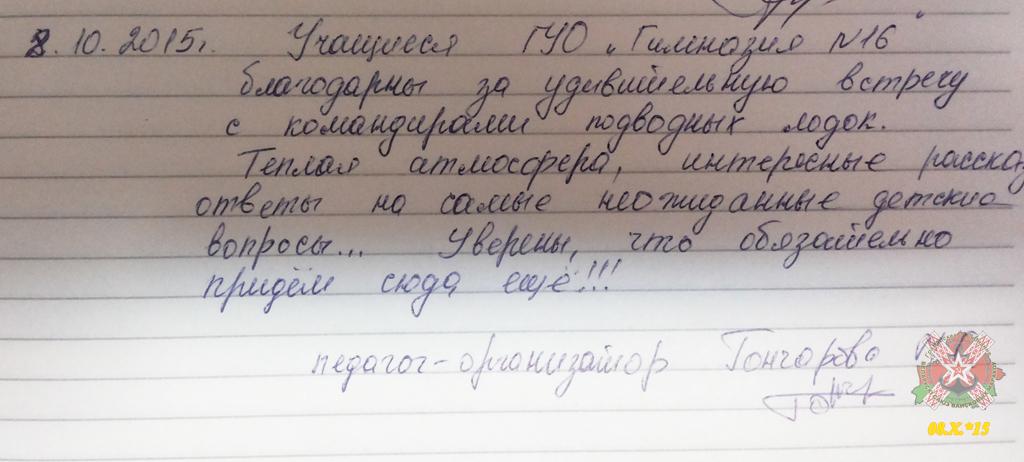 8.10.2015г. Учащиеся ГУО „Гимназия №16"
благодарны за удивительную встречу
с командирами подводных лодок.
Теплая атмосфера, интересные расска
ответы на самые неожиданные детские
вопросы... Уверены, что обязательно
придём сюда ещё!!!
педагог-организатор Гончарова
08.X.*15